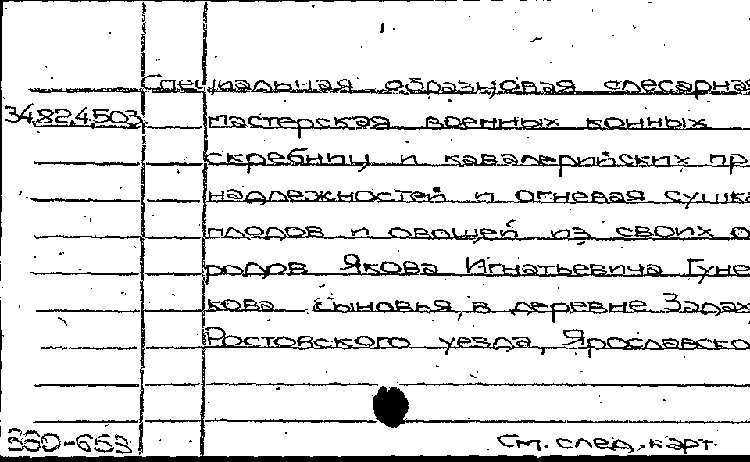 Специальная образцовая слесарная
34824503 мастерская военных конных
скребниц и кавалерийских пр
надлежностей и огневая сушка
плодов и овощей из своих о
родов Якова Игнатьевича Гуне
кова сыновья, в деревне
Ростовского уезда, Ярославско
380-653 См. след. карт.